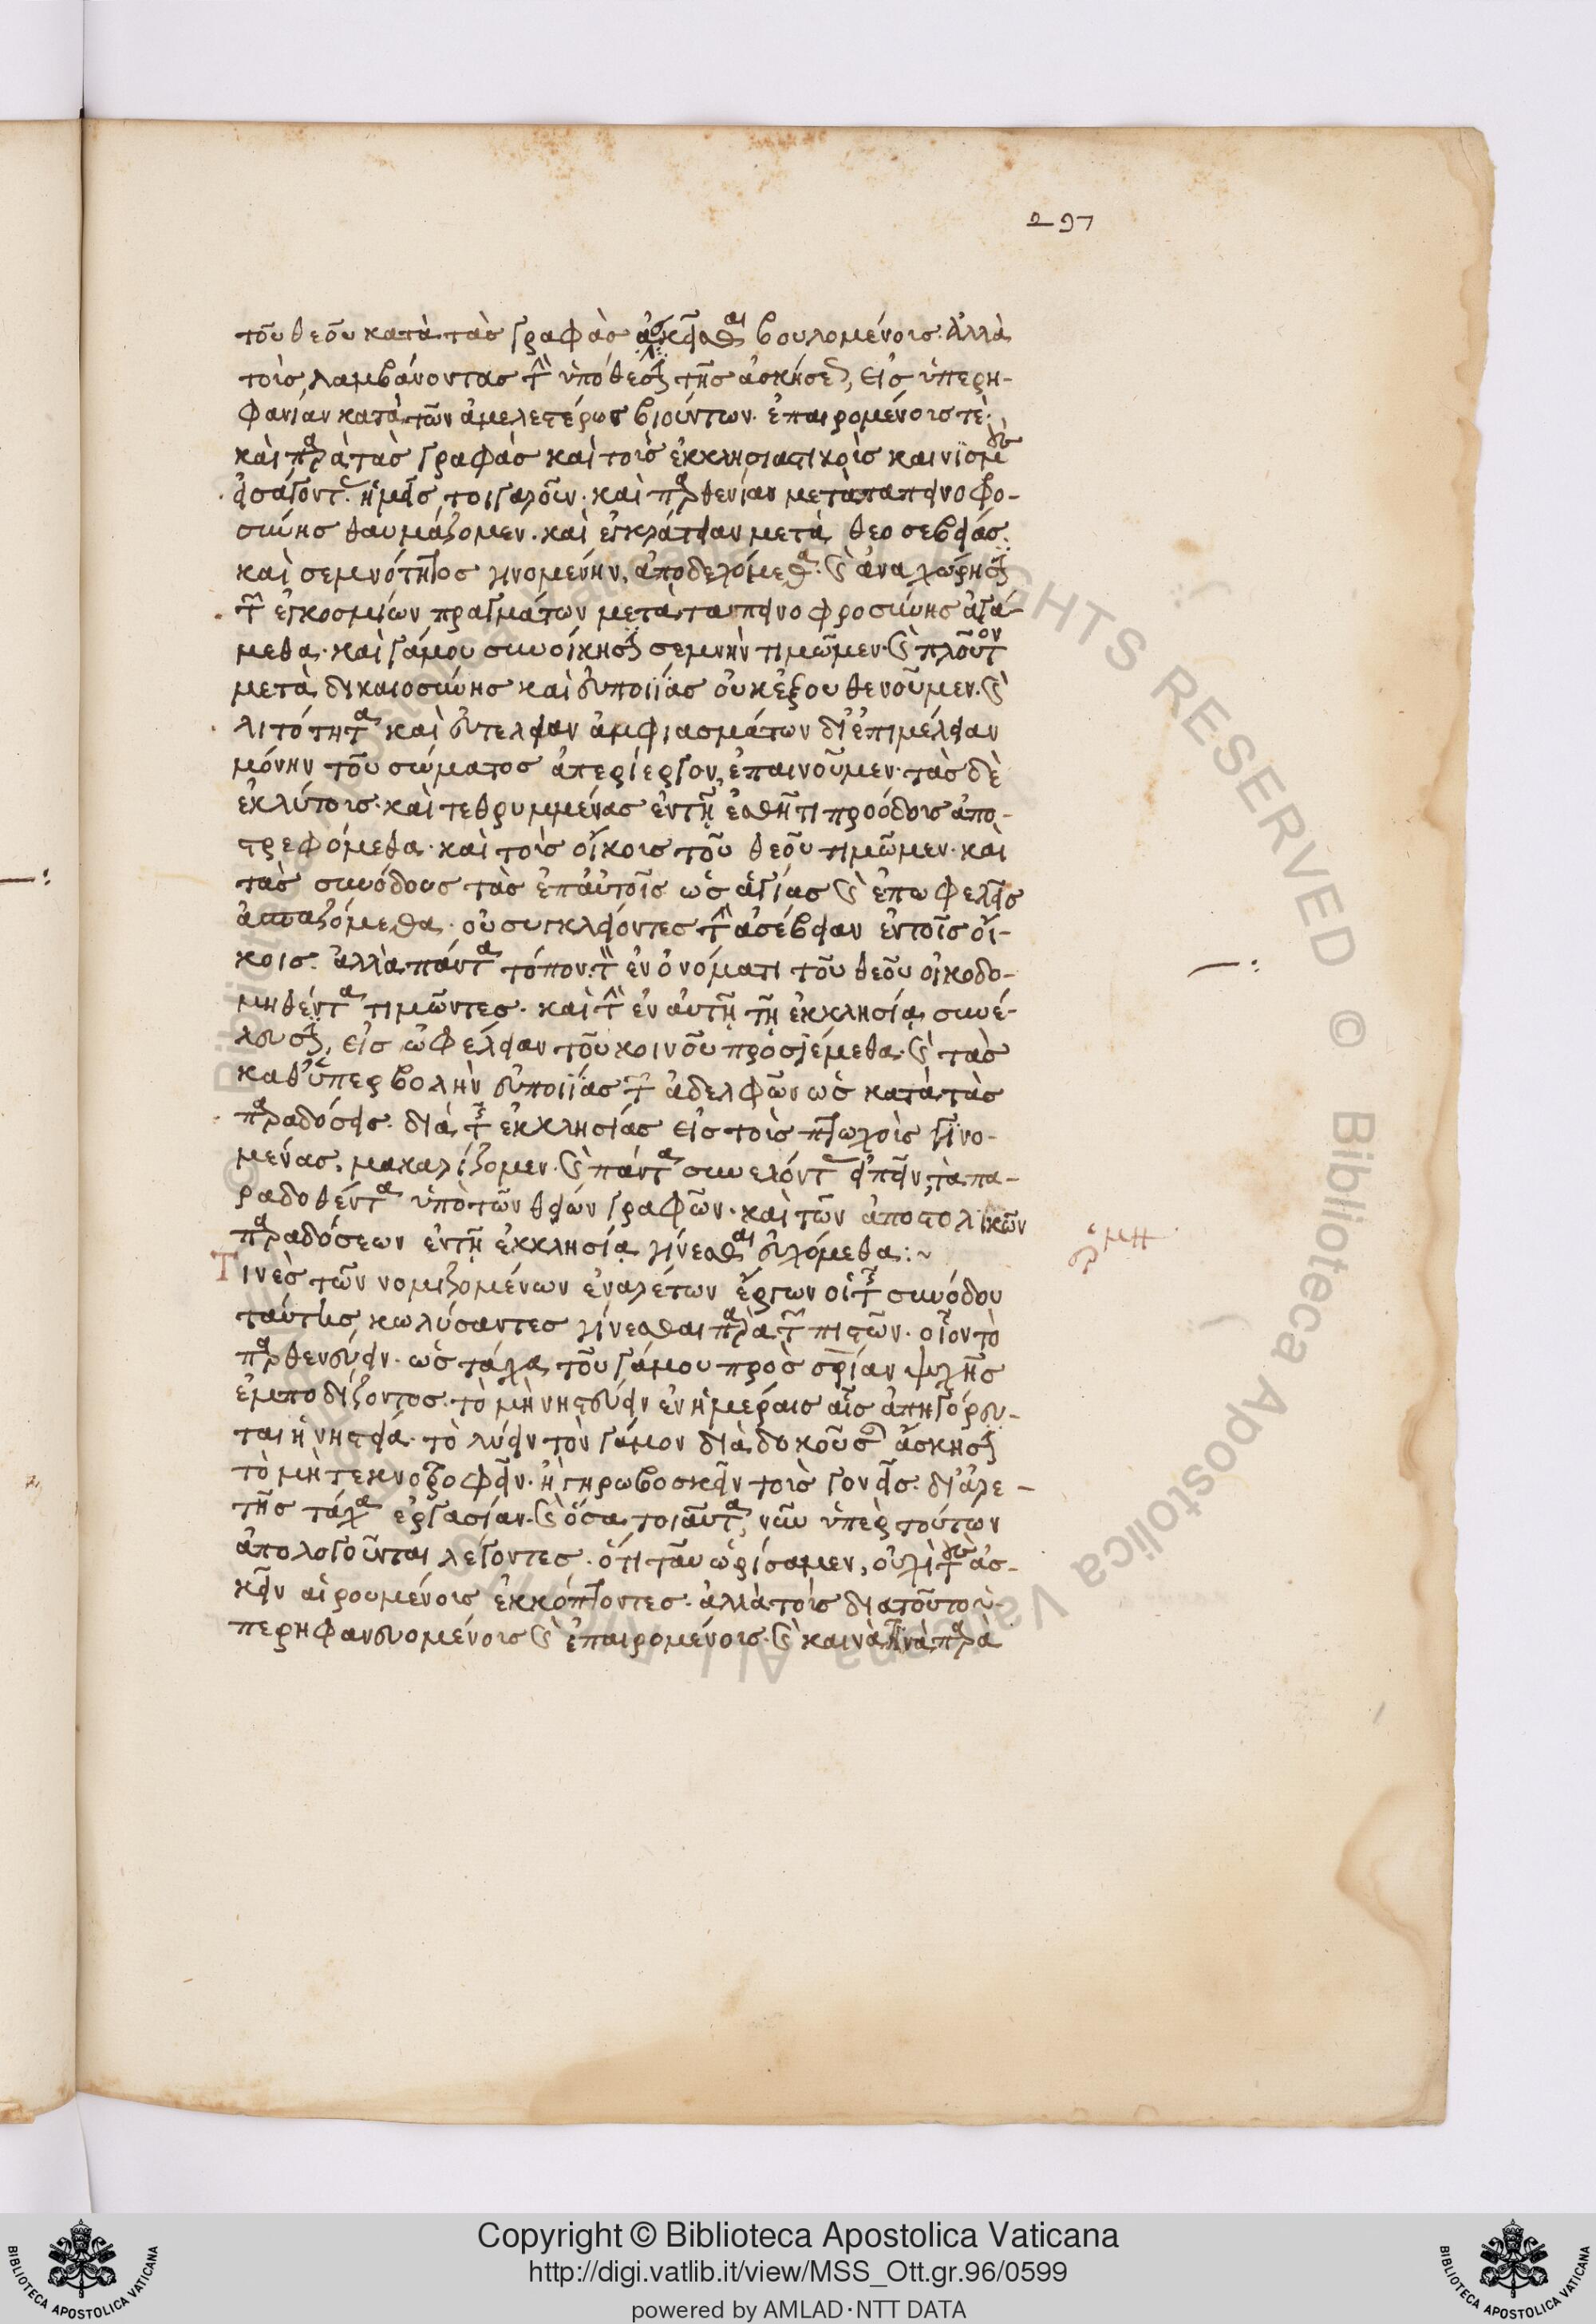 297
τοῦ θεοῦ κατὰ τὰς γραφὰς ἀσκεῖσθαι βουλομένους. ἀλλὰ
τοὺς λαμβάνοντας τὴν ὑπόθεσιν τῆς ἀσκήσεως, εἰς ὑπερη-
φανίαν κατὰ τῶν ἀμελεστέρως βιούντων. ἐπαιρομένους τὲ.
καὶ παρὰ τὰς γραφὰς καὶ τοὺς ἐκκλησιαστικοὺς καινισμοὺς
εἰσάγοντας. ἡμεῖς τοιγαροῦν. καὶ παρθενίαν μετὰ ταπεινοφρο-
σύνης θαυμάζομεν. καὶ ἐγκράτειαν μετὰ θεοσεβείας.
καὶ σεμνότητος γινομένην, ἀποδεχόμεθα. καὶ ἀναχώρησιν
τῶν ἐγκοσμίων πραγμάτων μετὰ ταπεινοφροσύνης ἀγά-
μεθα. καὶ γάμου συνοίκησιν σεμνὴν τιμῶμεν. καὶ πλοῦτον
μετὰ δικαιοσύνης καὶ εὐποιΐας οὐκ ἐξουθενοῦμεν. καὶ
λιτότητα καὶ εὐτέλειαν ἀμφιασμάτων δι' ἐπιμέλειαν
μόνην τοῦ σώματος ἀπερίεργον, ἐπαινοῦμεν. τὰς δὲ
ἐκλύτους. καὶ τεθρυμμένας ἐν τῇ ἐσθῆτι προόδους ἀπο-
στρεφόμεθα. καὶ τοὺς οἴκους τοῦ θεοῦ τιμῶμεν. καὶ
τὰς συνόδους τὰς ἐπ' αὐτοῖς ὡς ἁγίας καὶ ἐπωφελεῖς
ἀσπαζόμεθα. οὐ συγκλείοντες τὴν ἀσέβειαν ἐν τοῖς οἴ-
κοις. ἀλλὰ πάντα τόπον. τὸν ἐν ὀνόματι τοῦ θεοῦ οἰκοδο-
μηθέντα τιμῶντες. καὶ τὴν ἐν αὐτῇ τῇ ἐκκλησίᾳ συνέ-
λευσιν, εἰς ὠφέλειαν τοῦ κοινοῦ προσιέμεθα. καὶ τὰς
καθ' ὑπερβολὴν εὐποιΐας τῶν ἀδελφῶν ὡς κατὰ τὰς
παραδόσεις. διὰ τῆς ἐκκλησίας εἰς τοὺς πτωχοὺς γινο-
μένας, μακαρίζομεν. καὶ πάντα συνελόντας εἰπεῖν, τὰ πα-
ραδοθέντα ὑπὸ τῶν θείων γραφῶν. καὶ τῶν ἀποστολικῶν
παραδόσεων ἐν τῇ ἐκκλησίᾳ γίνεσθαι εὐχόμεθα:~
Τινὲς τῶν νομιζομένων ἐναρέτων ἔργων οἱ τῆς συνόδου
ταύτης κωλύσαντες γίνεσθαι παρὰ τῶν πιστῶν. οἷον τὸ
παρθενεύειν. ὡς τάχα τοῦ γάμου πρὸς σωτηρίαν ψυχῆς
ἐμποδίζοντος. τὸ μὴ νηστεύειν ἐν ἡμέραις αἷς ἀπηγόρευ-
ται ἡ νηστεία. τὸ λύειν τὸν γάμον διὰ δοκοῦσαν ἄσκησιν
τὸ μὴ τεκνοτροφεῖν. ἢ γηρωβοσκεῖν τοὺς γονεῖς. δι' ἀρε-
τῆς τάχα ἐργασίαν. καὶ ὅσα τοιαῦτα, νῦν ὑπὲρ τούτων
ἀπολογοῦνται λέγοντες. ὅτι ταῦτα ὡρίσαμεν, οὐχὶ τοὺς ἀσ-
κεῖν αἱρουμένους ἐκκόπτοντες. ἀλλὰ τοὺς διὰ τοῦτο ὑ-
περηφανευομένους καὶ ἐπαιρομένους. καὶ καινά τινα παρὰ
Copyright © Biblioteca Apostolica Vaticana
http://digi.vatlib.it/view/MSS_Ott.gr.96/0599
powered by AMLAD·NTT DATA
BIBLIOTECA APOSTOLICA VATICANA
BIBLIOTECA APOSTOLICA VATICANA